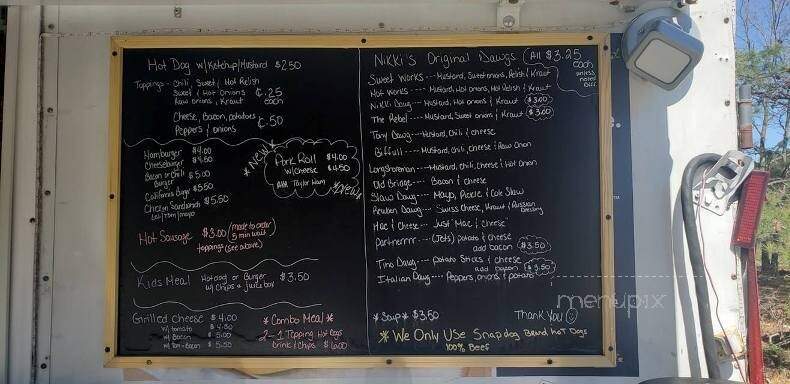 Hot Dog w/Ketchup/Mustard $2.50
Toppings - Chili, Sweet/Hot Relish
Sweet & Hot Onions ¢.25
Raw onions, Kraut each
Cheese, Bacon, potatoes ¢.50
Peppers & onions
Hamburger $4.00
Cheeseburger $4.50
Bacon or Chili $5.00
Burger
California Burger $5.50
Chicken Sandwich $5.50
let/tom/mayo
*NEW*
Pork Roll $4.00
w/cheese $4.50
AKA Taylor Ham
*NEW*
Hot Sausage $3.00 (made to order)
5 min wait
toppings (see above)
Kids Meal Hotdog or Burger $3.50
w/ chips & juice box
Grilled Cheese $4.00
w/ tomato $4.50
w/ Bacon $5.00
w/ Tom + Bacon $5.50
*Combo Meal*
2-1 Topping Hot Dogs
Drink/Chips $6.00
Nikki's Original Dawgs (All $3.25
each
unless
noted
Diff.
Sweet Works --- Mustard, Sweet onions, Relish & Kraut
Hot Works --- Mustard, Hot onions, Hot Relish & Kraut
Nikki Dawg --- Mustard, Hot onions & Kraut $3.00
The Rebel --- Mustard, Sweet onions & Kraut $3.00
Tony Dawg --- Mustard, Chili & cheese
Biffull --- Mustard, Chili, cheese & Raw Onion
Longshoreman --- Mustard, Chili, Cheese & Hot Onion
Old Bridge --- Bacon & cheese
Slaw Dawg --- Mayo, Pickle & Cole Slaw
Reuben Dawg --- Swiss Cheese, Kraut & Russian
Dressing
Mac & Cheese --- Just "Mac & Cheese"
Partnerrrr --- (Jets) potato & cheese
add bacon $3.50
Tino Dawg --- potato Sticks & cheese
add bacon $3.50
Italian Dawg --- Peppers, onions & potato
*Soup* $3.50
Thank You
* We Only Use Snapdog Brand Hot Dogs
100% Beef
menupix